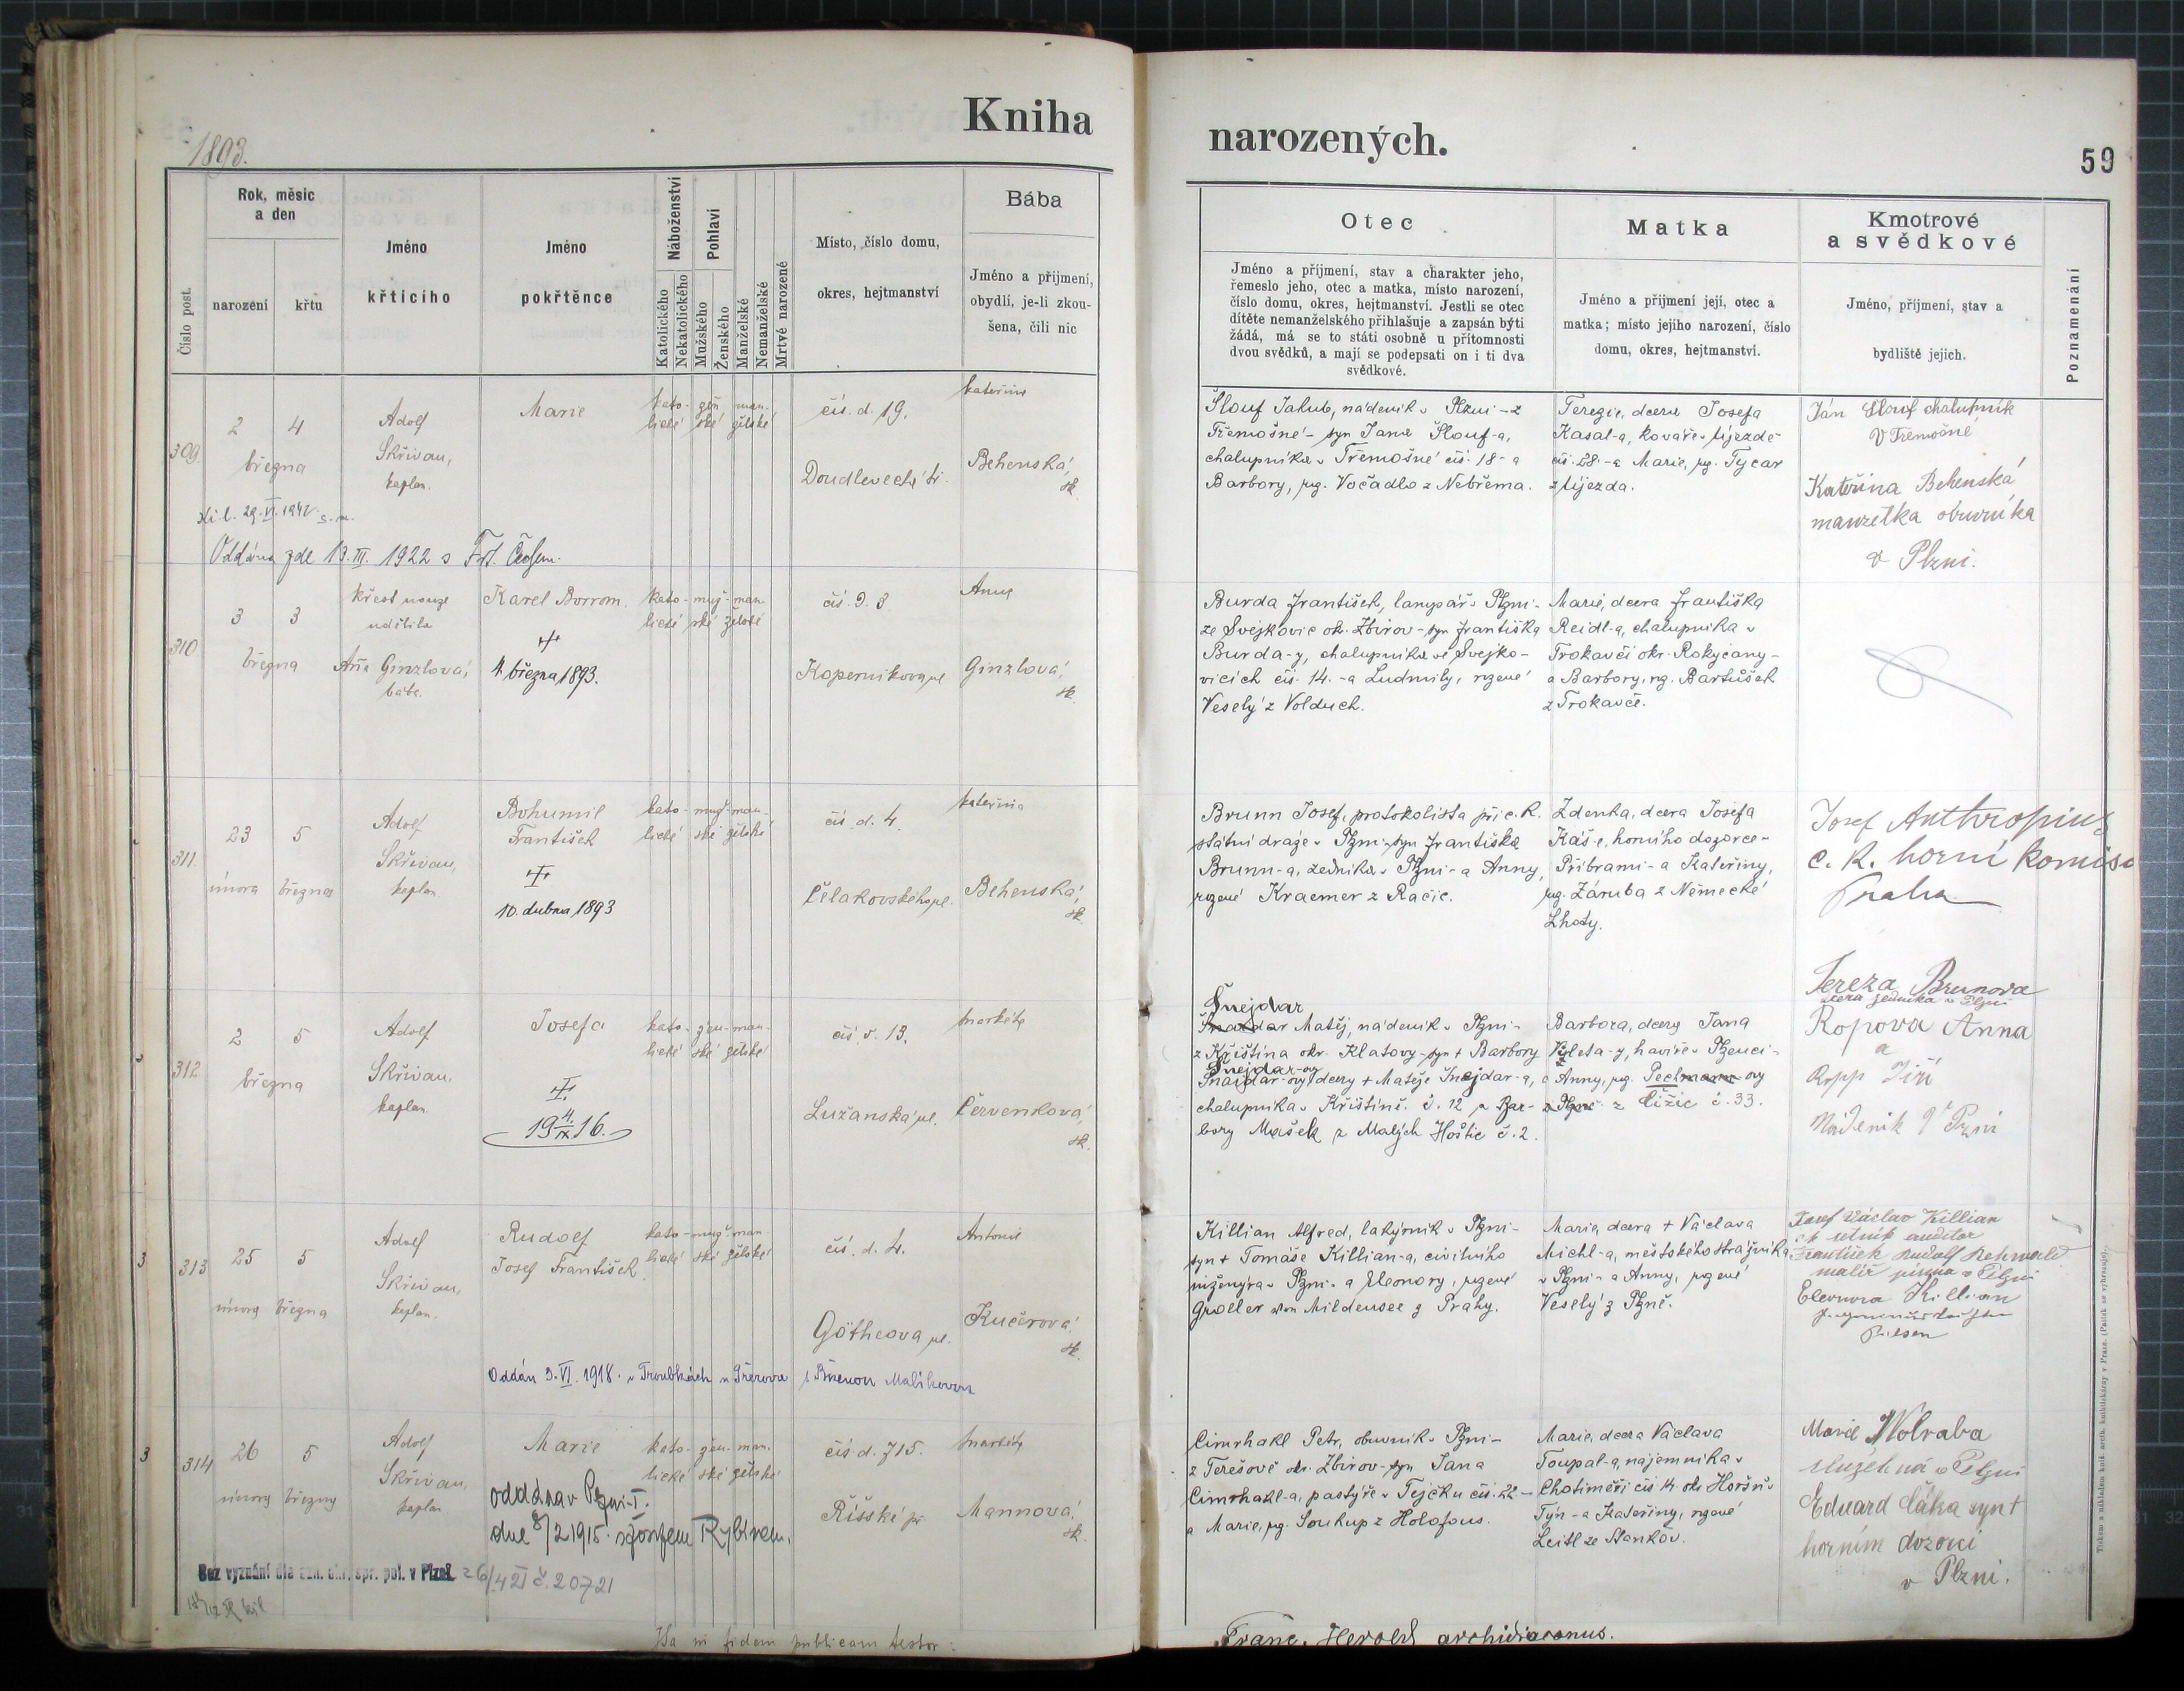 Kniha
narozených.
1893.
59
Číslo post.
Rok, měsíc
a den
narození
křtu
Jméno
křtícího
Jméno
pokřtěnce
Náboženství
Katolického
Nekatolického
Pohlaví
Mužského
Ženského
Manželské
Nemanželské
Mrtvé narozené
Místo, číslo domu,
okres, hejtmanství
Bába
Jméno a přijmení,
obydlí, je-li zkou-
šena, čili nic
Otec
Jméno a příjmení, stav a charakter jeho,
řemeslo jeho, otec a matka, místo narození,
číslo domu, okres, hejtmanství. Jestli se otec
dítěte nemanželského přihlašuje a zapsán býti
žádá, má se to státi osobně u přítomnosti
dvou svědků, a mají se podepsati on i ti dva
svědkové.
Matka
Jméno a přijmení její, otec a
matka; místo jejího narození, číslo
domu, okres, hejtmanství.
Kmotrové
a svědkové
Jméno, příjmení, stav a
bydliště jejich.
Poznamenání
309.
2 4
března
Adolf
Skřivan,
kaplan.
Marie
kato- žen- man-
lické ské želské
čís. d. 19.
Doudlevecká tř.
Kateřina
Behenská,
zk.
29. VI. 1942
Oddána zde 13. III. 1922 s
Šlouf Jakub, nádeník v Plzni - z
Třemošné - syn Jana Šlouf-a,
chalupníka v Třemošné čís. 18 - a
Barbory, roz. Vočadlo z Nebřema.
Terezie, dcera Josefa
Kasal-a, kováře v Újezdě
čís. 28 - a Marie, roz. Tycar
z Újezda.
Ján Šlouf chalupník
v Třemošné
Kateřina Behenská
manželka obuvníka
v Plzni.
310
3 3
března
křest nouze
udělila
Anna Ginzlová,
bába.
Karel Borrom.
+
4. března 1893.
kato- muž- man-
lické ské želské
čís. 9. 3.
Koperníkova ul.
Anna
Ginzlová,
zk.
Burda František, lampář v Plzni -
ze Svejkovic okr. Zbirov - syn Františka
Burda-y, chalupníka ve Svejko-
vicích čís. 14. - a Ludmily, rozené
Veselý z Volduch.
Marie, dcera Františka
Reidl-a, chalupníka v
Trokavči okr. Rokycany -
a Barbory, roz. Bartůšek
z Trokavče.
311.
23 5
února března
Adolf
Skřivan,
kaplan.
Bohumil
František
+
10. dubna 1893
kato- muž- man-
lické ské želské
čís. d. 4.
Čelakovského ul.
Kateřina
Behenská,
zk.
Brunn Josef, protokolista při c. k.
státní dráze v Plzni - syn Františka
Brunn-a, zedníka v Plzni - a Anny,
rozené Kraemer z Račic.
Zdenka, dcera Josefa
Káš-e, horního dozorce v
Příbrami - a Kateřiny,
roz. Záruba z Německé
Lhoty.
Josef Anthropius
c. k. horní komisa
Praha
Tereza Brunova
dcera zedníka v Plzni
312.
2 5
března
Adolf
Skřivan,
kaplan.
Josefa
+
19 4/IX 16.
kato- žen- man-
lické ské želské
čís. d. 13.
Lužanská ul.
Markéta
Červenková,
zk.
Šnejdar
Šnaidar Matěj, nádeník v Plzni -
z Křištína okr. Klatovy - syn + Barbory
Šnejdar-ový
Šnaidar-ový dcery + Matěje Šnejdar-a,
chalupníka v Křištíně č. 12 a Bar-
bory Mašek z Malých Hoštic č. 2.
Barbora, dcera Jana
Výleta-y, havíře v Plzenci -
a Anny, roz. Peclmann-ový
z Plzně z Čižic č. 33.
Ropova Anna
a
Ropp Jiří
Nádeník v Plzni
313
3
25 5
února března
Adolf
Skřivan,
kaplan.
Rudolf
Josef František
kato- muž- man-
lické ské želské
čís. d. 4.
Götheova ul.
Antonie
Kučerová,
zk.
Oddán 3. VI. 1918. v Troubkách u Přerova s Boženou Malíkovou
Killian Alfred, lakýrník v Plzni -
syn + Tomáše Killian-a, civilního
inženýra v Plzni - a Eleonory, rozené
Groller von Mildensee z Prahy.
Marie, dcera + Václava
Michl-a, městského strážníka
v Plzni - a Anny, rozené
Veselý z Plzně.
Josef Václav Killian
auditor
František Rudolf Rehwald
malíř písma v Plzni
Eleonora Killian
Pilsen
314
3
26 5
února března
Adolf
Skřivan,
kaplan
Marie
kato- žen- man-
lické ské želské
čís. d. 715.
Říšské př.
Markéta
Mannová,
zk.
oddána v Plzni-I.
dne 8/2 1915. s Josefem Rybínem.
Bez vyznání dle ozn. okr. spr. pol. v Plzni 26/4 21 č. 20721
Cimrhakl Petr, obuvník v Plzni -
z Terešové okr. Zbirov - syn Jana
Cimrhakl-a, pastýře v Tejčku čís. 22 -
a Marie, roz. Soukup z Holofous.
Marie, dcera Václava
Toupal-a, nájemníka v
Chotiměři čís. 14 okr. Horšův
Týn - a Kateřiny, rozené
Leitl ze Stankov.
Marie Wolraba
služebná v Plzni
Eduard Cáka syn +
horním dozorci
v Plzni.
Ita in fidem publicam testor:
Franc. Herold archidiaconus.